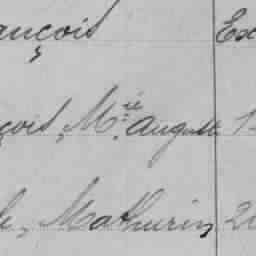 ançois Ex
çois, M.ie auguste 1
le, Mathurin 20